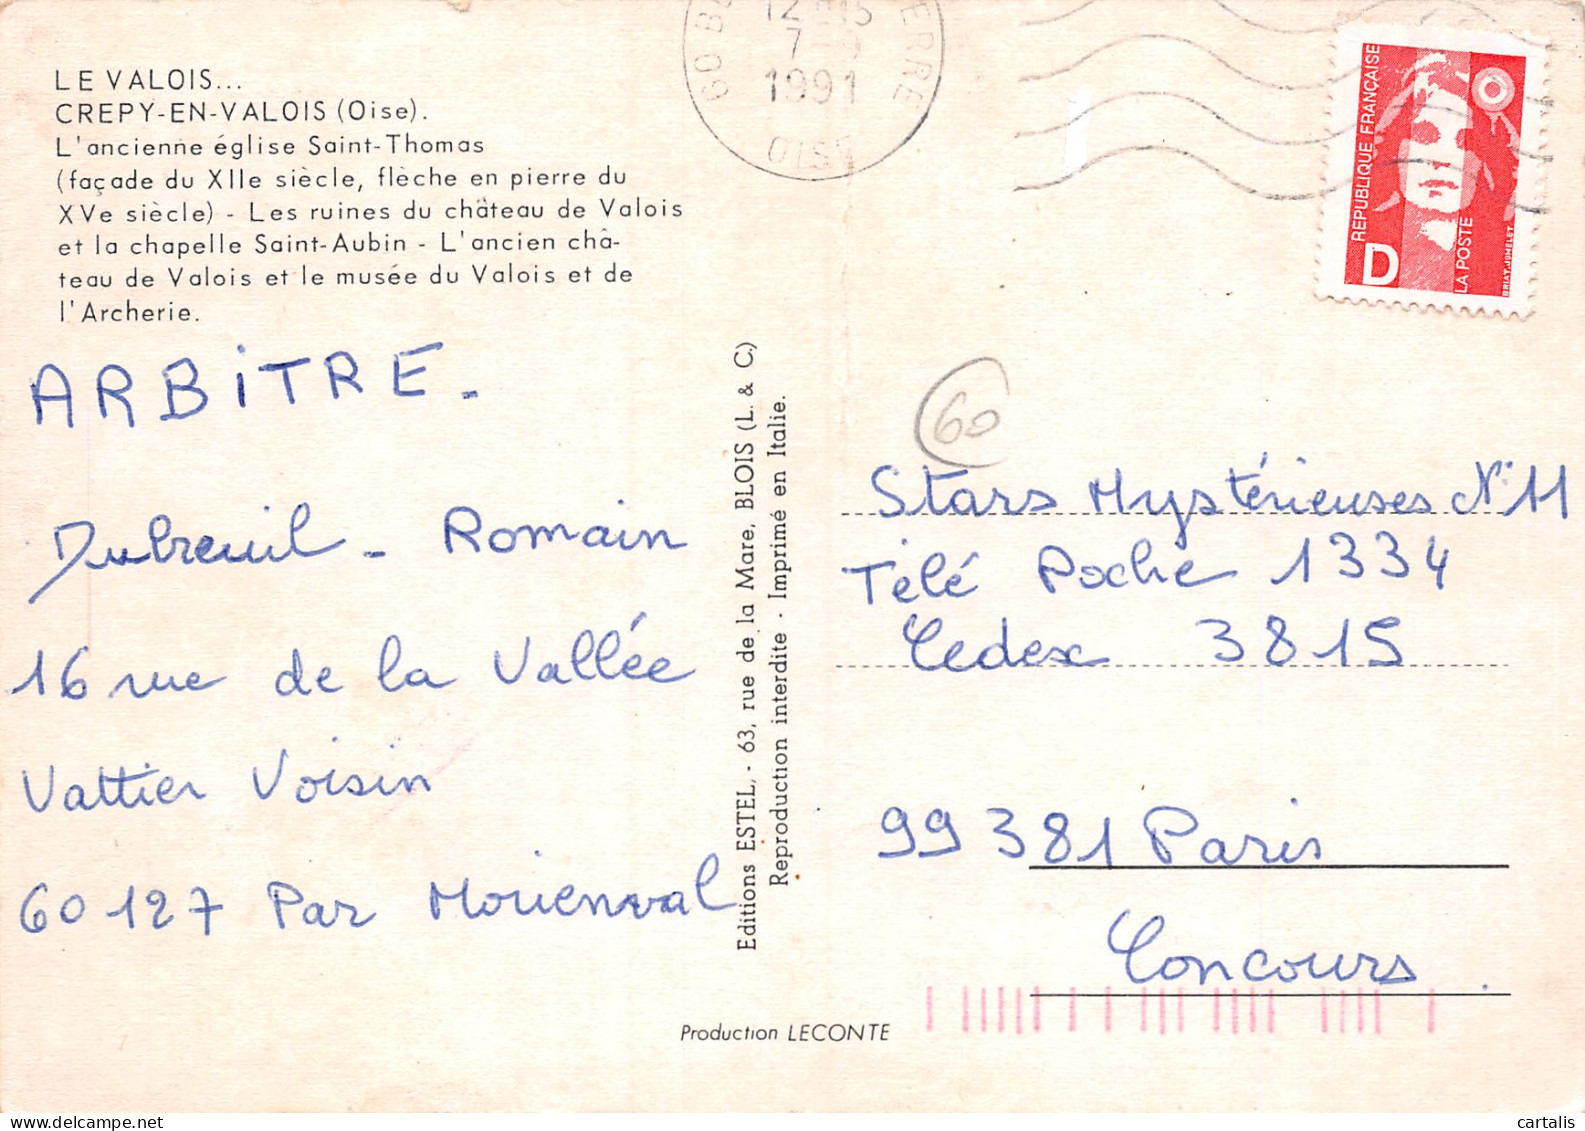 LE VALOIS...
CREPY-EN-VALOIS (Oise).
L'ancienne église Saint-Thomas
(façade du XIIe siècle, flèche en pierre du
XVe siècle) - Les ruines du château de Valois
et la chapelle Saint-Aubin - L'ancien châ-
teau de Valois et le musée du Valois et de
l'Archerie.
ARBiTRE.
Dubreuil - Romain
16 rue de la Vallée
Vattier Voisin
60127 Par Morienval
Editions ESTEL, - 63, rue de la Mare, BLOIS (L. & C.)
Reproduction interdite - Imprimé en Italie.
Production LECONTE
12 H15
7-
1991
60
ERRE
OISE
REPUBLIQUE FRANÇAISE
D
LA POSTE
BRIAT.JUMELET
60
Stars Mystérieuses N°11
Télé Poche 1334
Cedex 3815
99381 Paris
Concours
cartalis